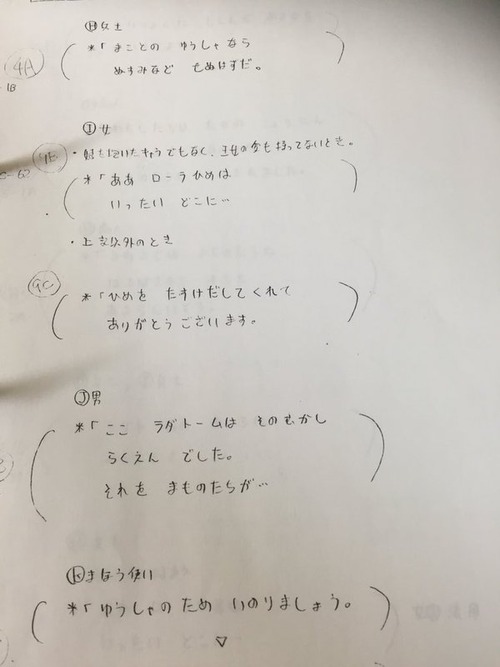 Ⓗ女王
*「まことの ゆうしゃなら
ぬすみなど せぬはずだ。
4A
1B
Ⓘ女
9B
・姫を抱いたキャラでもなく、王女の愛も持ってないとき。
*「ああ ローラひめは
いったい どこに…
・上記以外のとき
9C
*「ひめを たすけだしてくれて
ありがとうございます。
Ⓙ男
*「ここ ラダトームは そのむかし
らくえん でした。
それを まものたちが…
Ⓚまほう使い
*「ゆうしゃのため いのりましょう。
▽